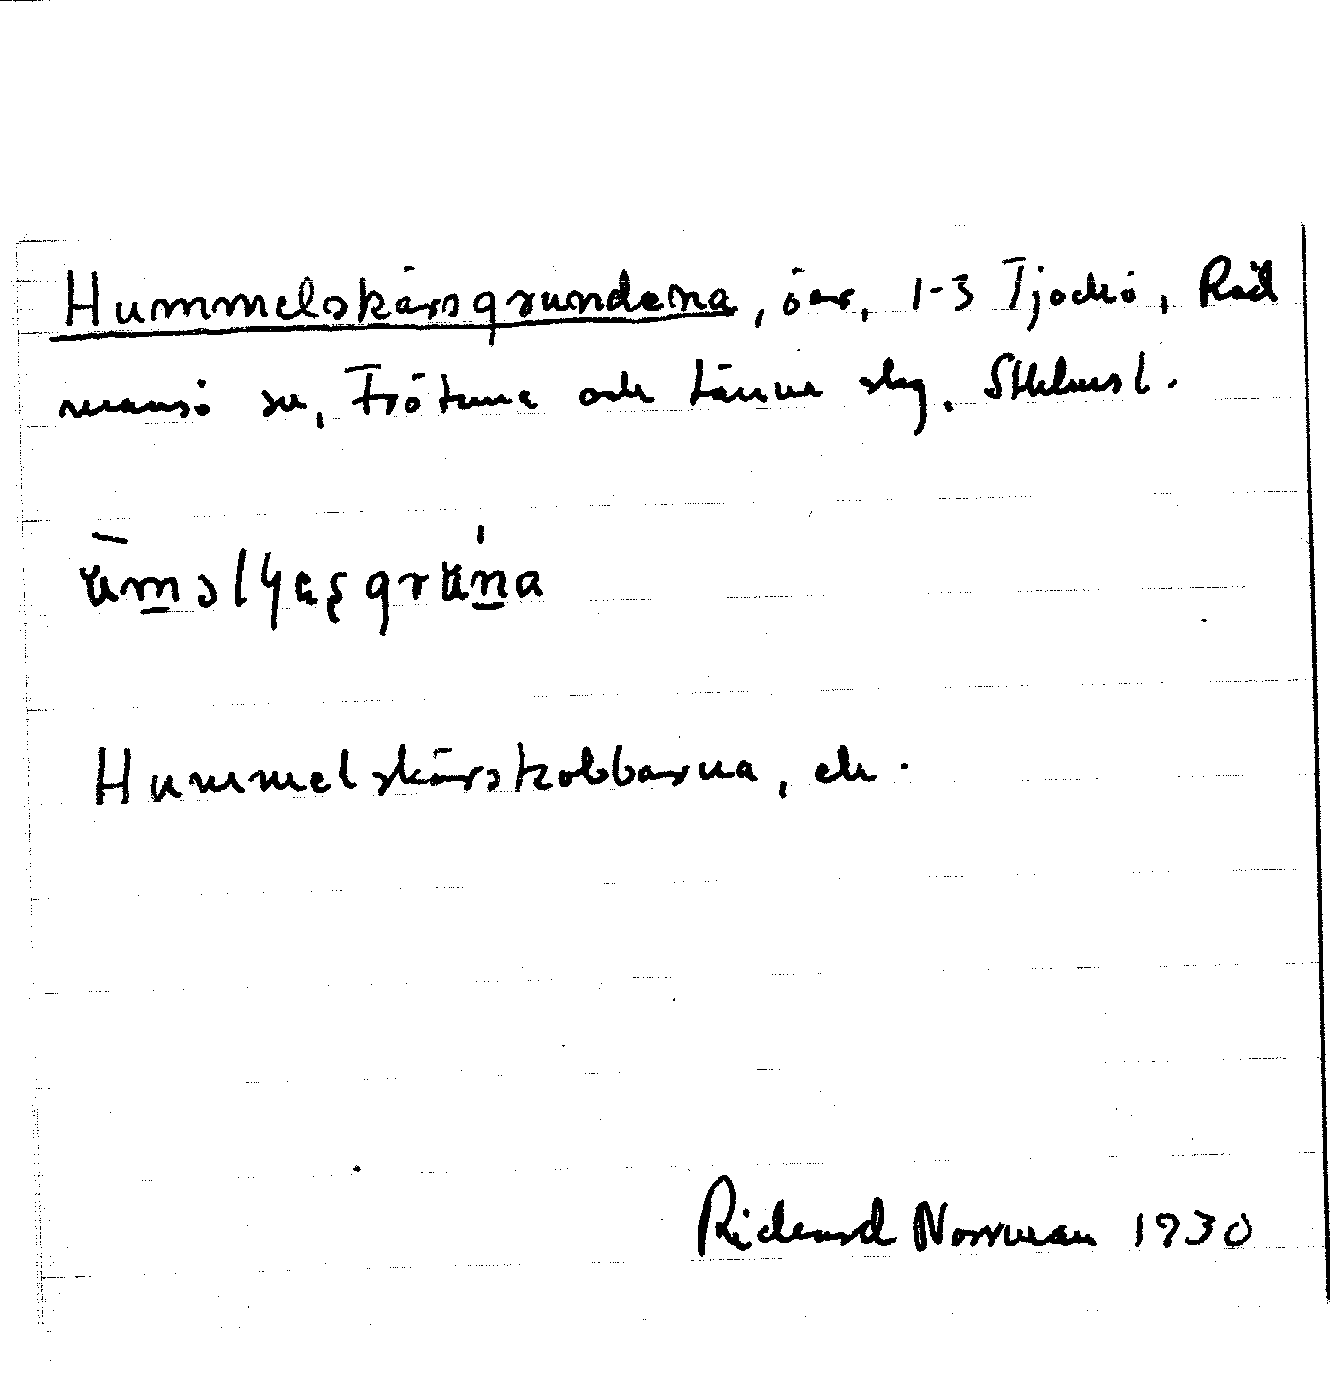 Hummelskärsgrundena, öar, 1-3 Tjockö, Råd
mansö sn, Frötuna och Länna skg, Sthlmsl.
Hummelskärskobbarna, ek.
Rickard Norrman 1930